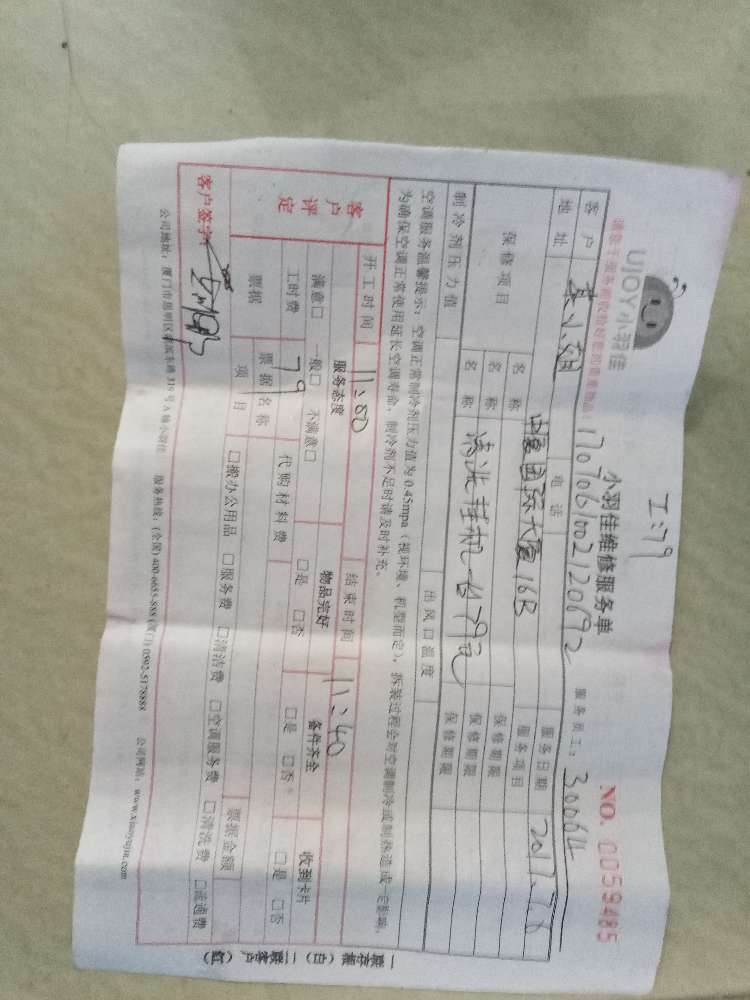 工:79
UJOY小羽佳
小羽佳维修服务单
NO. 0059485
1707061002120692
服务员工: 30064
客户
电话
服务日期 2017.7.6
地址 国际大厦16B
服务项目
保修项目
名称 清洗挂机一台79元
保修期限
名称
保修期限
制冷剂压力值
出风口温度
空调服务温馨提示:空调正常制冷剂压力值为0.45mpa(视环境、机型而定),拆装过程会对空调制冷或制热造成一定影响,
为确保空调正常使用延长空调寿命,制冷剂不足时请及时补充。
开工时间 11:00
结束时间 11:40
客户评定
服务态度
物品完好
备件齐全
收到卡片
满意□ 一般□ 不满意□
□是 □否
□是 □否
□是 □否
工时费 79
代购材料费
票据
票据名称
票据金额
项目
□搬办公用品 □服务费 □清洁费 □空调服务费 □清洗费 □疏通费
客户签字
公司地址:厦门市思明区 319号A幢小羽佳 服务热线:(全国)400-6655-888 (厦门)0592-5178888 公司网址:www.xiaoyujia.com
一联存根(白) 二联客户(红)